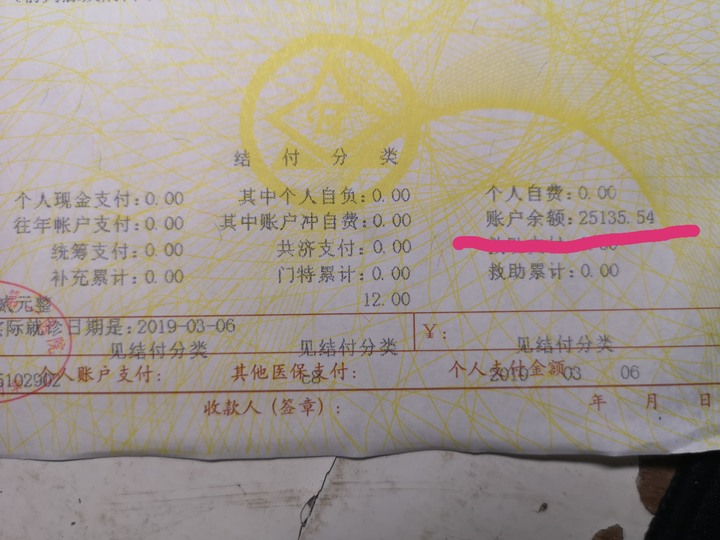 结付分类
个人现金支付:0.00 其中个人自负:0.00 个人自费:0.00
往年帐户支付:0.00 其中账户冲自费:0.00 账户余额:25135.54
统筹支付:0.00 共济支付:0.00
补充累计:0.00 门特累计:0.00 救助累计:0.00
元整 12.00
际就诊日期是:2019-03-06
¥:
见结付分类 见结付分类 见结付分类
个人账户支付: 其他医保支付: 个人支付金额
5102902 03 06
收款人(签章): 年 月 日